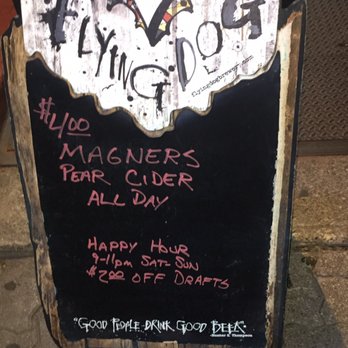 FLYING DOG
flyingdogbrewery.com
$4.00
MAGNERS
PEAR CIDER
ALL DAY
HAPPY HOUR
9-11PM SAT-SUN
$2.00 OFF DRAFTS
"GOOD PEOPLE DRINK GOOD BEER."
-Hunter S. Thompson